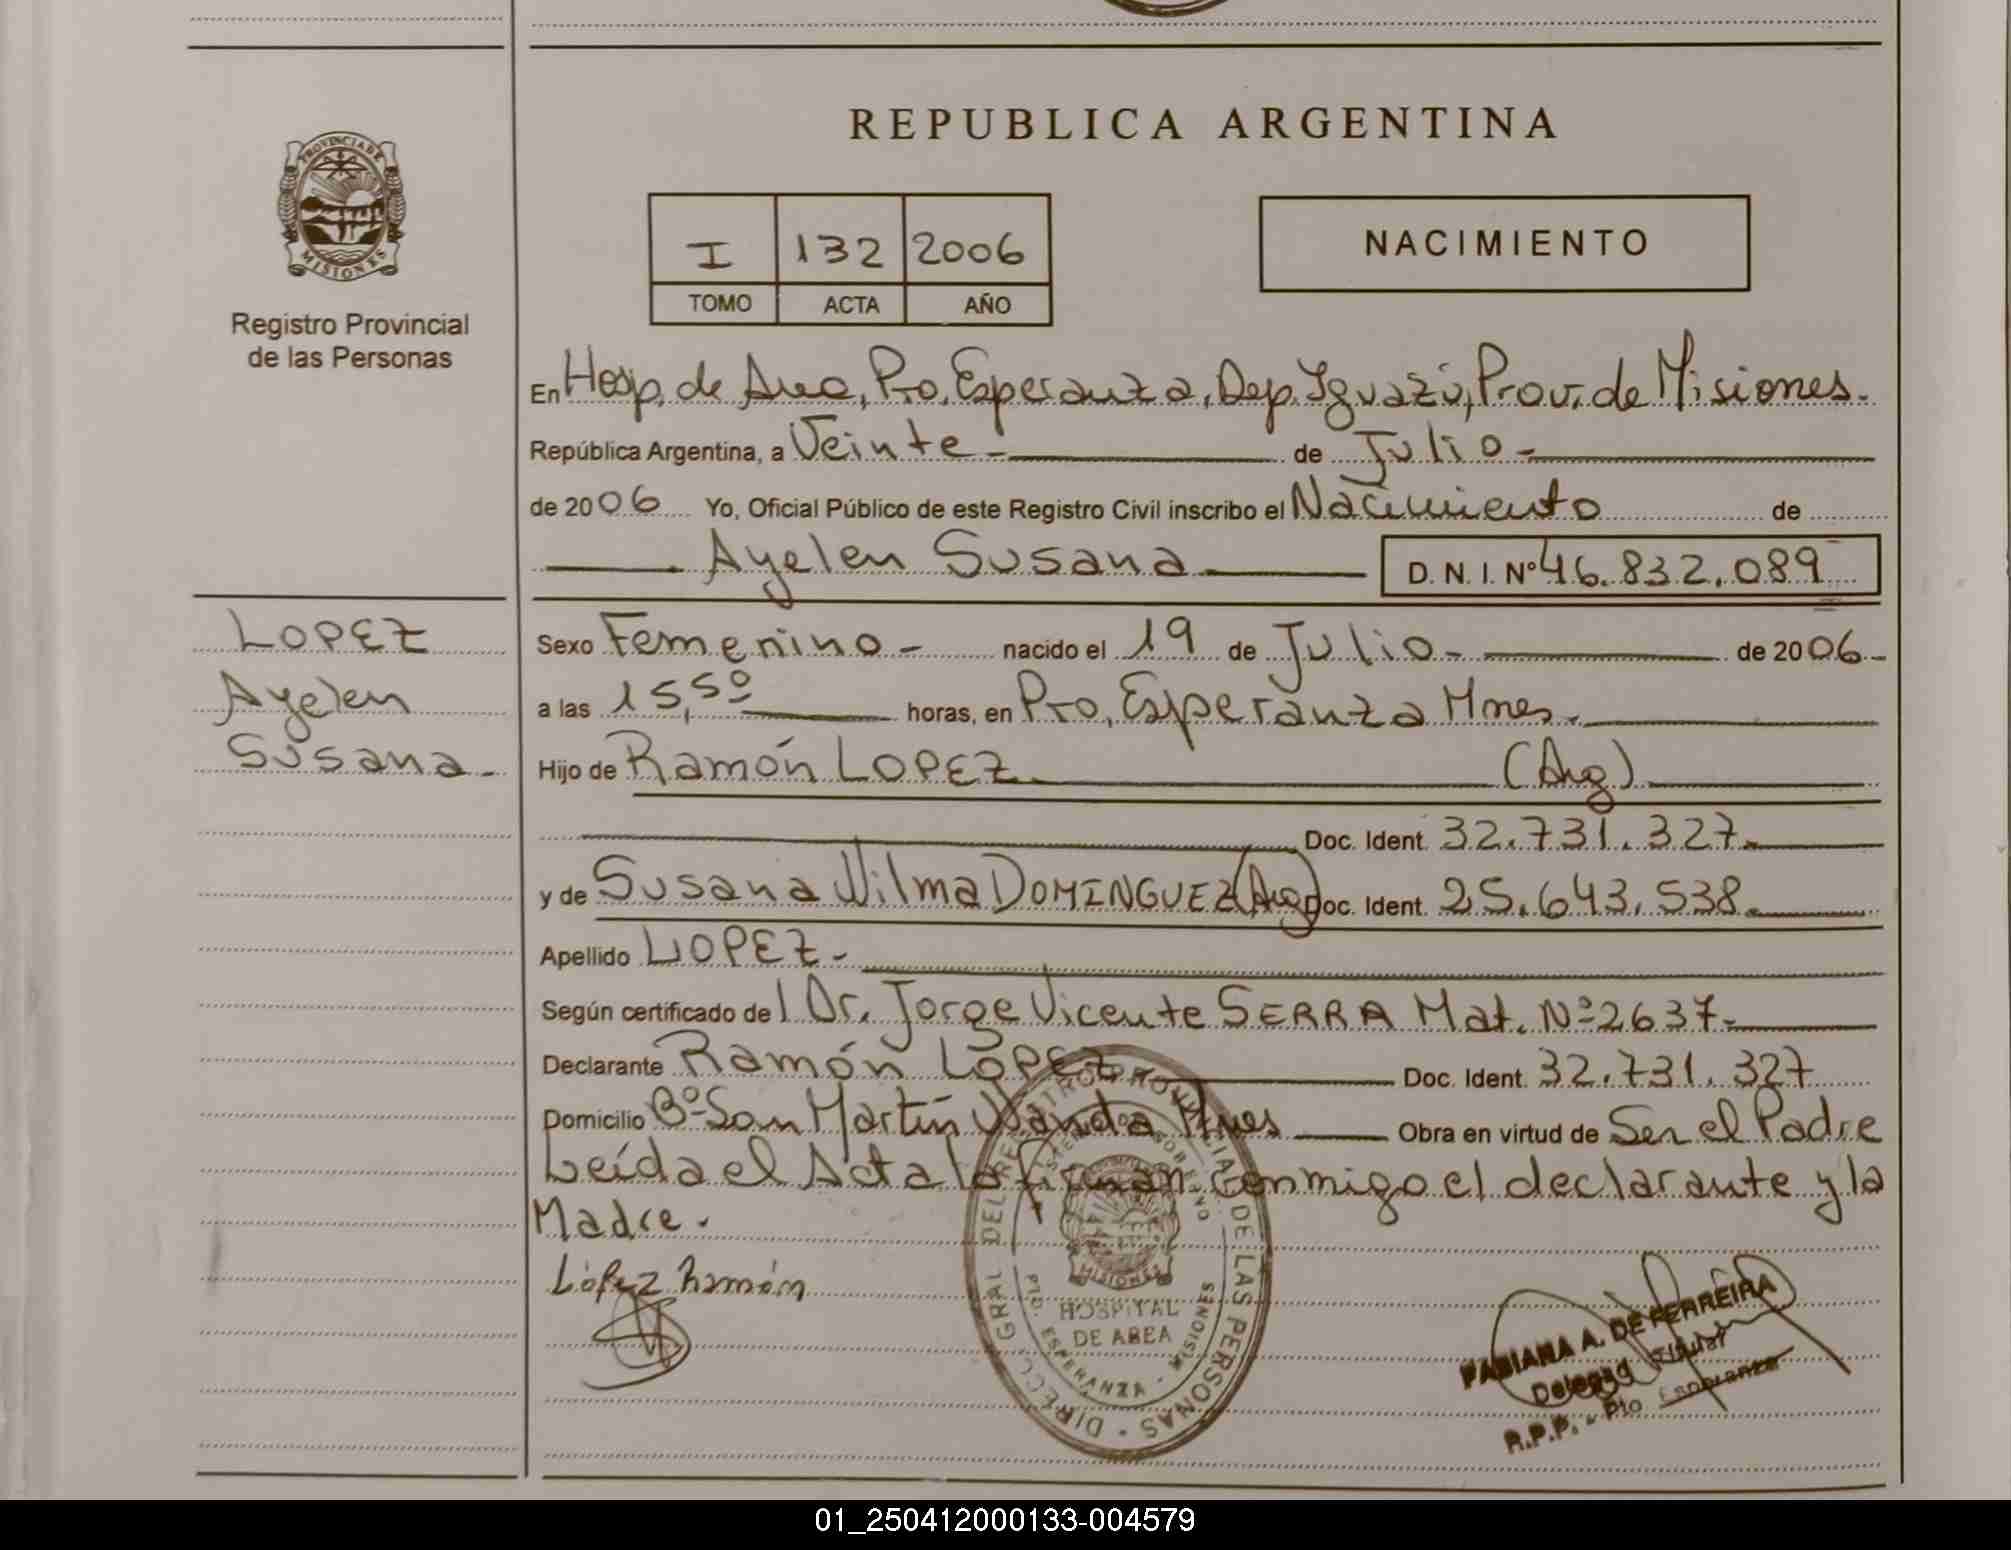 REPUBLICA ARGENTINA
PROVINCIA DE MISIONES
Registro Provincial
de las Personas
I 132 2006
TOMO ACTA AÑO
NACIMIENTO
En Hosp. de Area, Pto. Esperanza, Dep. Iguazú, Prov. de Misiones.
República Argentina, a Veinte - de Julio -
de 2006 Yo, Oficial Público de este Registro Civil inscribo el Nacimiento de
Ayelen Susana D. N. I. Nº 46.832.089
LOPEZ
Ayelen
Susana.-
Sexo Femenino - nacido el 19 de Julio - de 2006
a las 15,50 horas, en Pto. Esperanza Mnes.
Hijo de Ramón LOPEZ (Arg)
Doc. Ident. 32.731.327.
y de Susana Wilma DOMINGUEZ (Arg) Doc. Ident. 25.643.538.
Apellido LOPEZ -
Según certificado del Dr. Jorge Vicente SERRA Mat. Nº 2637-
Declarante Ramón LOPEZ Doc. Ident. 32.731.327
Domicilio Bº San Martín Wanda Mnes Obra en virtud de Ser el Padre
Leída el Acta la firman conmigo el declarante y la
Madre.
López Ramón
DIRECC. GRAL DEL REGISTRO PROVINCIAL DE LAS PERSONAS
MISIONES
HOSPITAL
DE AREA
PTO. ESPERANZA - MISIONES
FABIANA A. DE FERREIRA
Delegad Titular
R.P.P. - Pto Esperanza
01_250412000133-004579